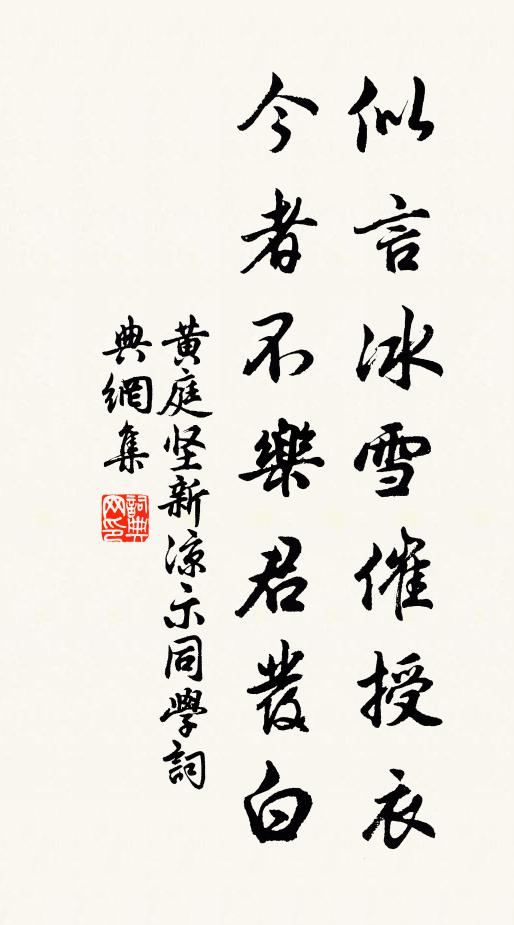 似言冰雪催授衣
今者不樂君發白
黄庭坚新凉示同學詞
典網集
詞典网印